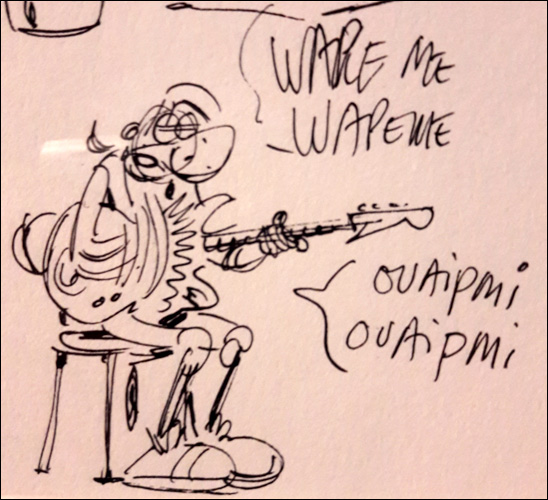 WAPE ME
WAPEME
OUAipMi
OUAipMi